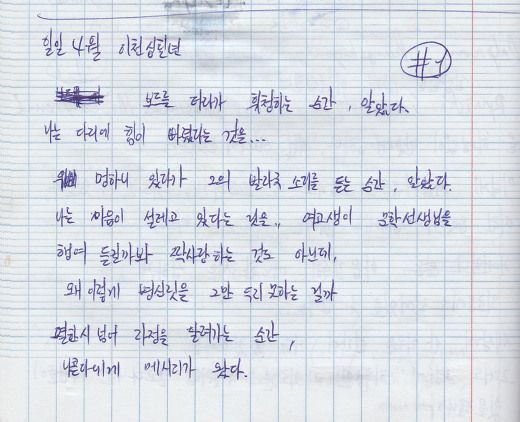 일일 4월 이천십칠년
#1
모든 다리가 휘청하는 순간, 알았다.
나는 다리에 힘이 빠졌다는 것을...
멍하니 있다가 그의 발자국 소리를 듣는 순간, 알았다.
나는 마음이 설레고 있다는 것을.. 여고생이 문학선생님을
행여 들킬까봐 짝사랑하는 것도 아닌데,
왜 이렇게 병신짓을 그만 두지 못하는 걸까
열한시 넘어 자정을 달려가는 순간,
메시지가 왔다.